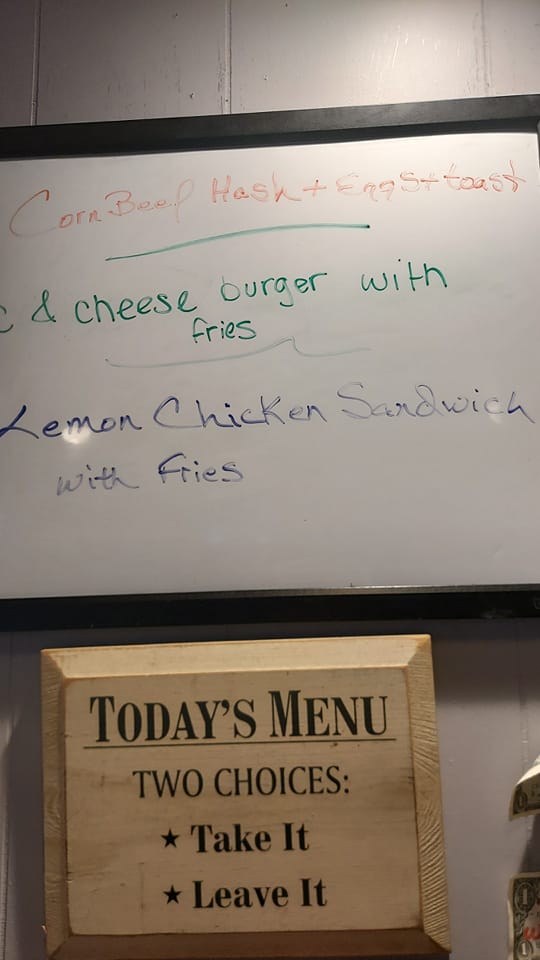 Corn Beef Hash + Eggs + toast
c & cheese burger with
fries
Lemon Chicken Sandwich
with Fries
TODAY'S MENU
TWO CHOICES:
★ Take It
★ Leave It
1
1